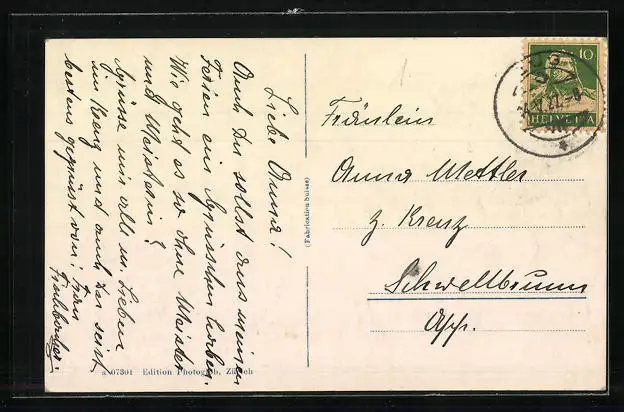 Liebe Anna!
Auch du sollst aus meinen
Ferien ein Grüsschen haben.
Wie geht es so ohne Meister
und Meisterin?
Grüsse mir alle m. Lieben
im Kreuz und auch du seist
bestens gegrüsst von: Frau
(Fabrication Suisse)
Fräulein
Anna Mettler
z. Kreuz
Schwellbrunn
App.
10
HELVETIA
a 07301 Edition Photoglob, Zürich